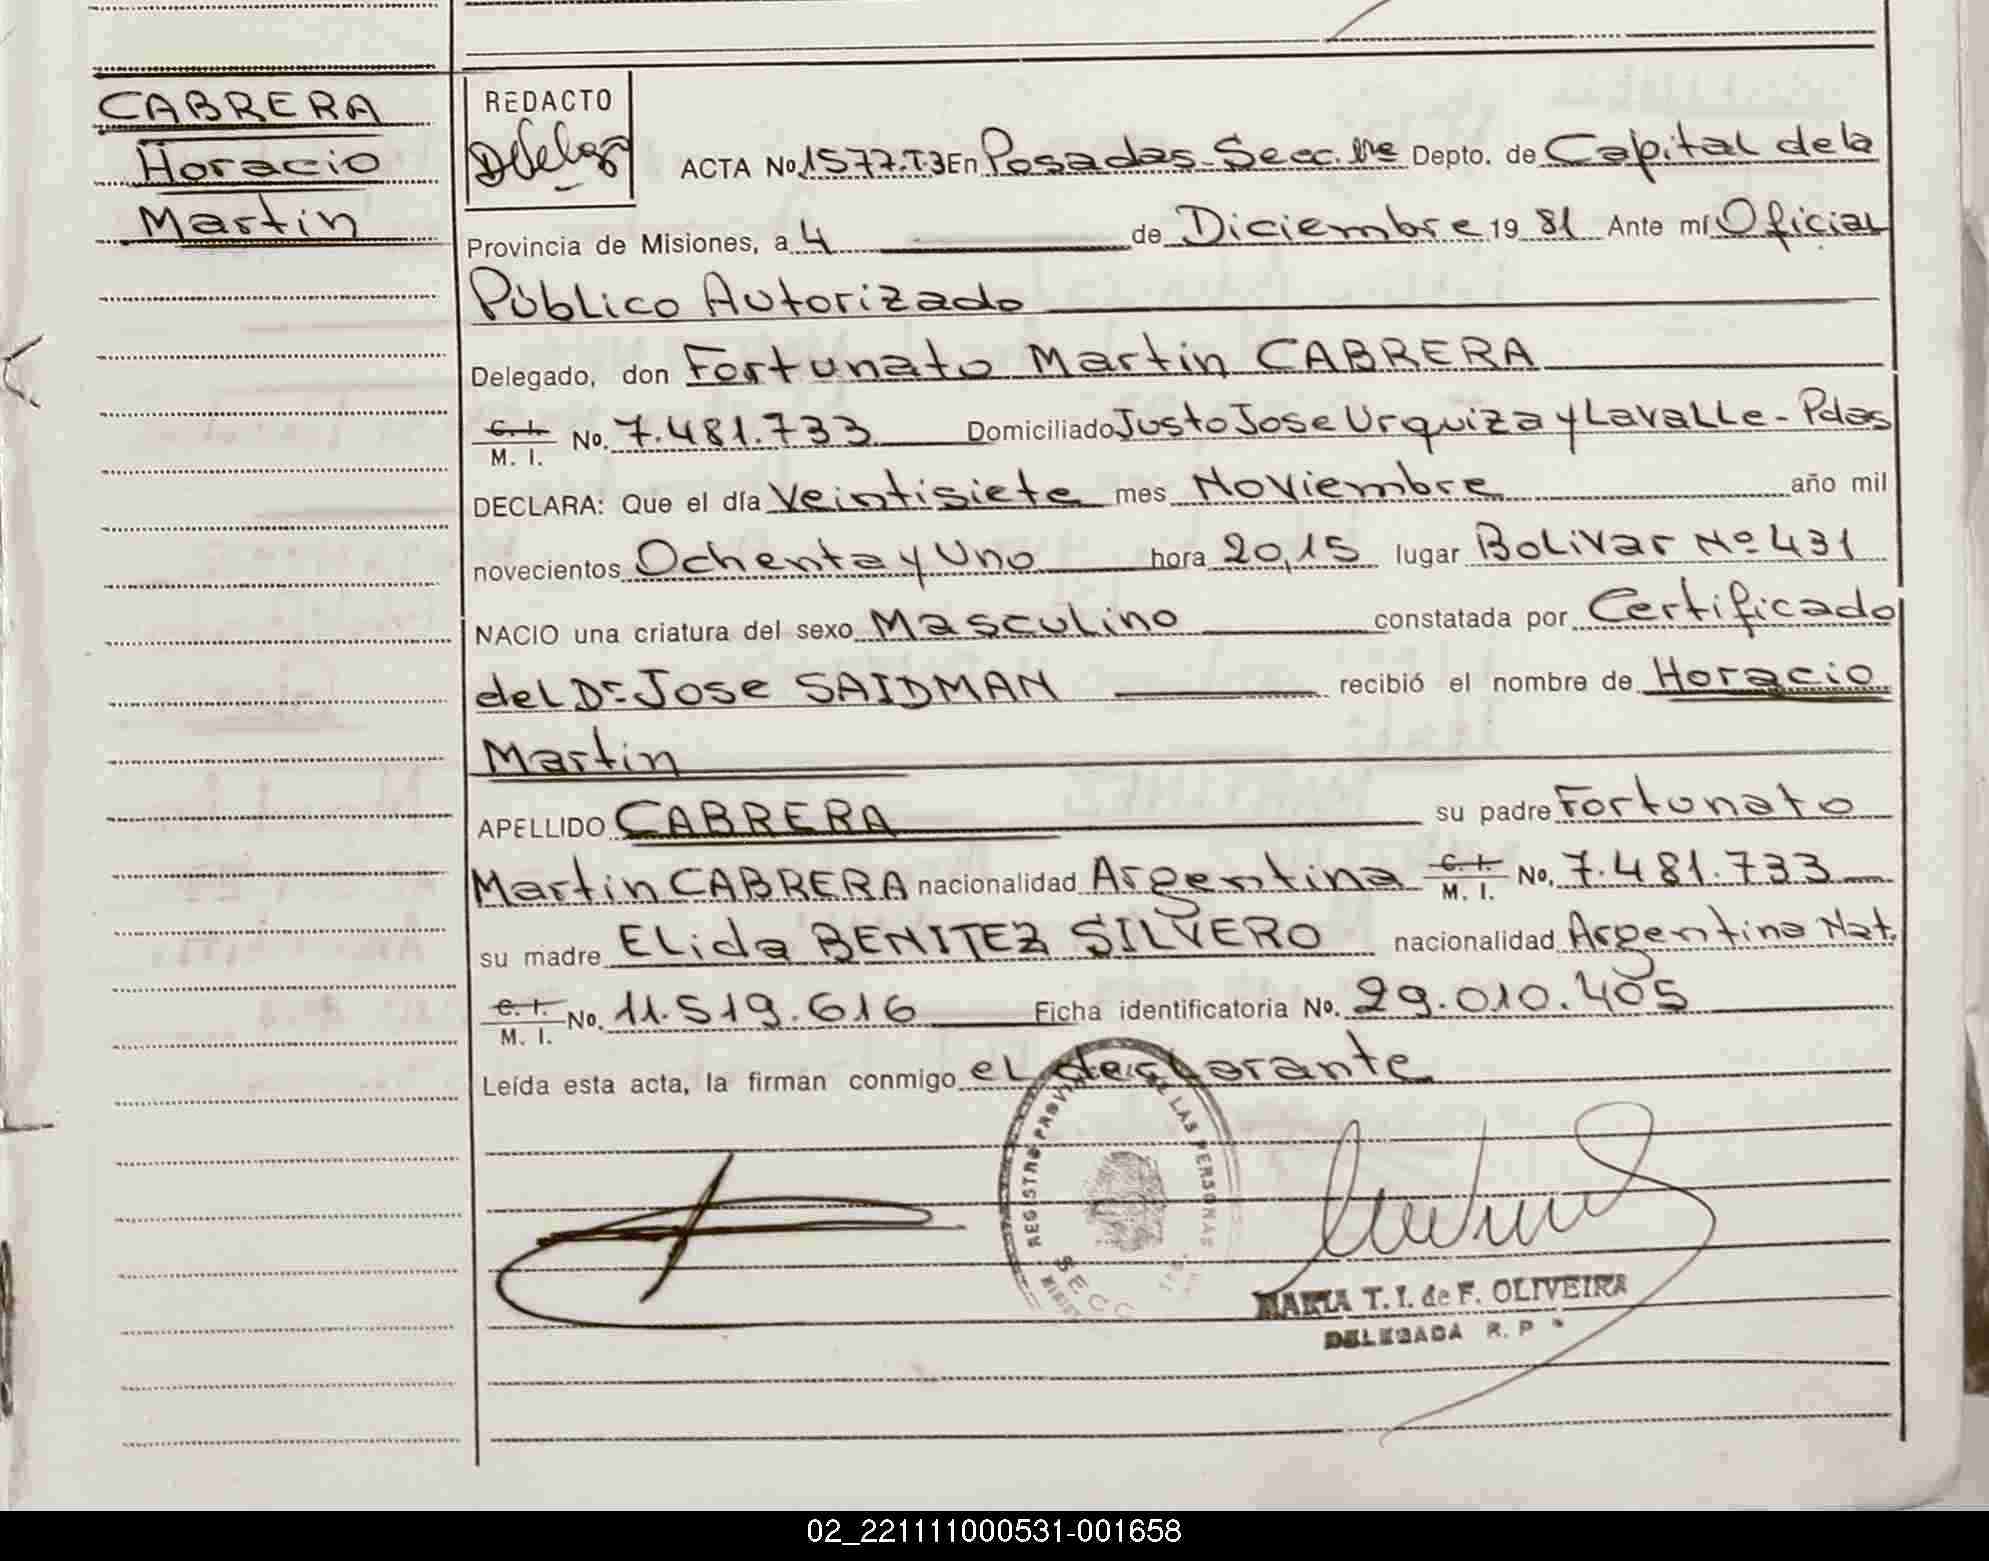 CABRERA
Horacio
Martin
REDACTO
ACTA No. 1577.T3 En Posadas-Secc. 1ra Depto. de Capital de la
Provincia de Misiones, a 4 de Diciembre 19 81 Ante mí Oficial
Público Autorizado
Delegado, don Fortunato Martin CABRERA
C. I.
M. I. No. 7.481.733 Domiciliado Justo Jose Urquiza y Lavalle - Pdas
DECLARA: Que el día Veintisiete mes Noviembre año mil
novecientos Ochenta y Uno hora 20,15 lugar Bolivar Nº 431
NACIO una criatura del sexo Masculino constatada por Certificado
del Dr. Jose SAIDMAN recibió el nombre de Horacio
Martin
APELLIDO CABRERA su padre Fortunato
Martin CABRERA nacionalidad Argentina C. I.
M. I. No. 7.481.733
su madre Elida BENITEZ SILVERO nacionalidad Argentina Nat.
C. I.
M. I. No. 11.519.616 Ficha identificatoria No. 29.010.405
Leída esta acta, la firman conmigo el declarante
REGISTRO DE LAS PERSONAS
SECC
MARIA T. I. de F. OLIVEIRA
DELEGADA R. P
02_221111000531-001658